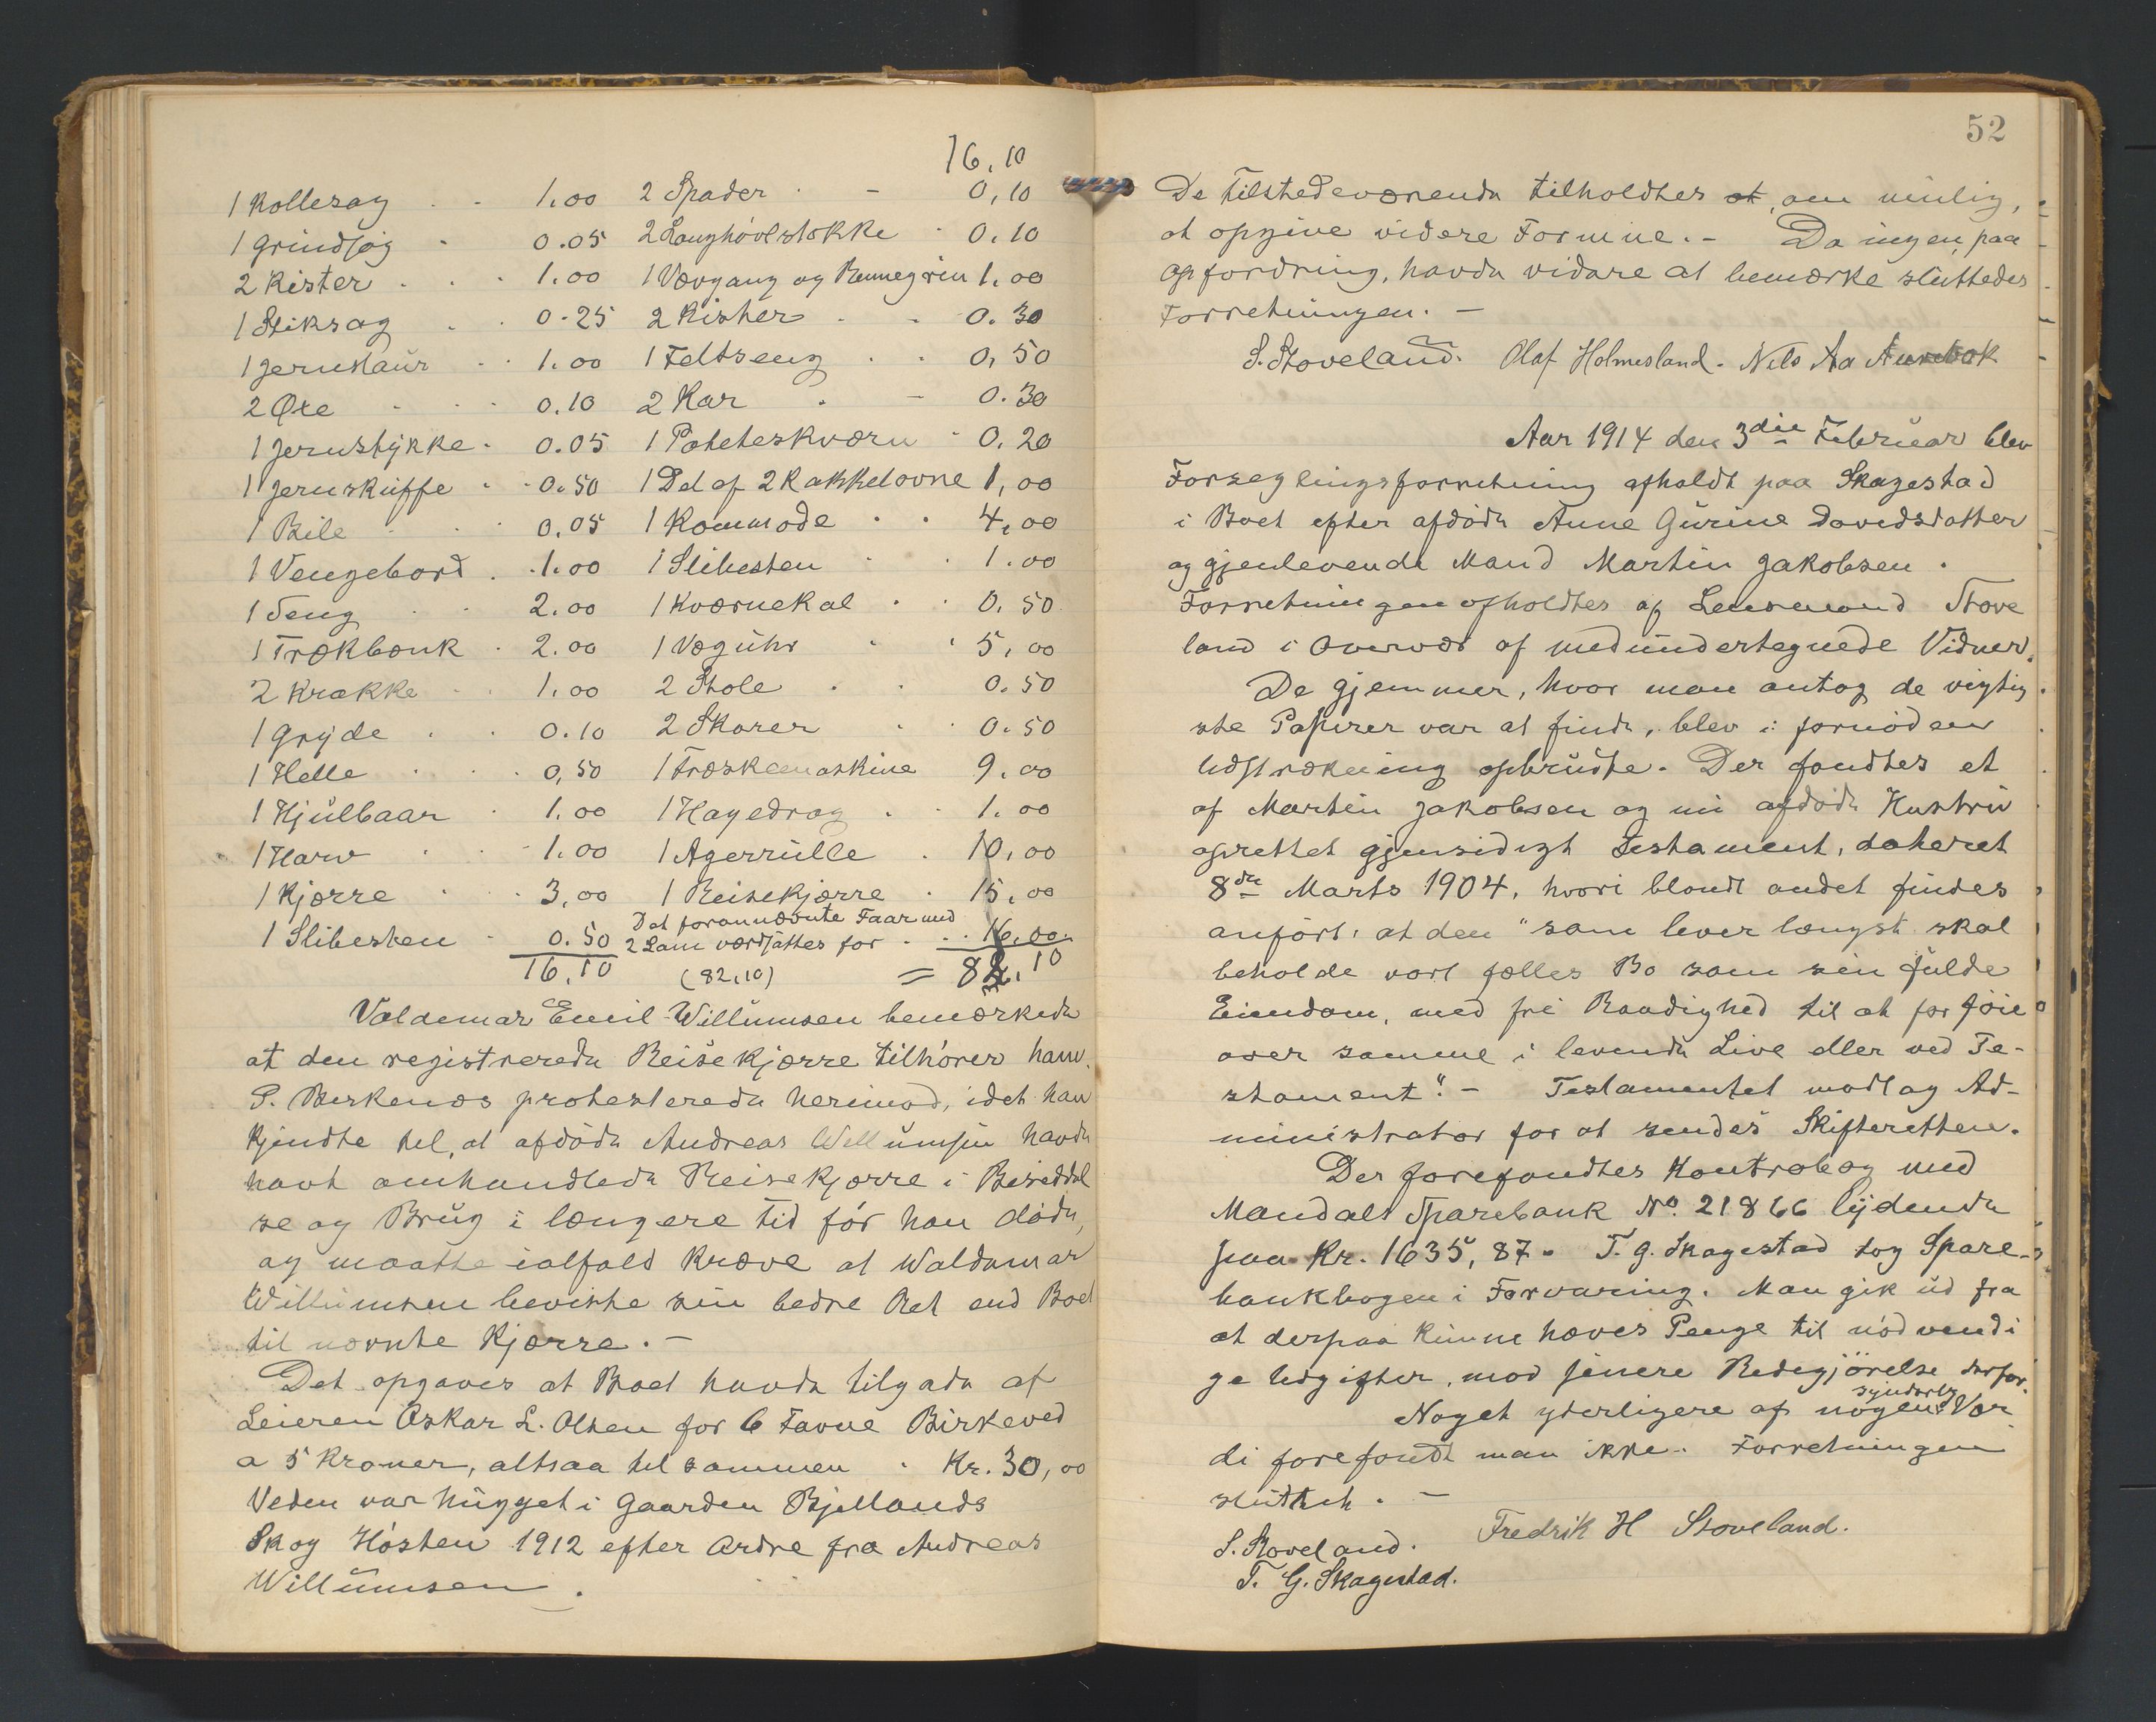 16.10
1 Kollesag 1.00
1 Grindsag 0.05
2 Kister 1.00
1 Stiksag 0.25
1 Jernstaur 1.00
2 Øxe 0.10
1 Jernstykke 0.05
1 Jernskuffe 0.50
1 Bile 0.05
1 Vengebord 1.00
1 Seng 2.00
1 Trækbænk 2.00
2 Krakke 1.00
1 Gryde 0.10
1 Helle 0,50
1 Hjulbaar 1.00
1 Harv 1.00
1 Kjærre 3,00
1 Slibesten 0.50
16.10
2 Spader 0,10
2 Langhövlstokke 0.10
1 Vævgang og Rennegrin 1.00
2 Kister 0.30
1 Feltseng 0,50
2 Kar 0.30
1 Poteteskværn 0.20
1 Del af 2 Kakkelovne 1,00
1 Kommode 4,00
1 Slibesten 1.00
1 Kværnekal 0.50
1 Væguhr 5,00
2 Stole 0.50
2 Skorer 0.50
1 Træskemaskine 9.00
1 Hagedrag 1.00
1 Agerrulle 10,00
1 Reisekjærre 15,00
Det forannævnte Faar med
2 Lam værdsattes for 16,00
(82,10) = 82,10
Valdemar Emil Willumsen bemærkede
at den registrerede Reisekjærre tilhører ham.
P. Birkenes protesterede herimod, idet han
kjendte til, at afdøde Andreas Willumsen havde
havt omhandlede Reisekjærre i Besiddel
se og Brug i længere tid før han døde,
og maatte ialfald kræve at Waldemar
Willumsen beviste sin bedre Ret end Boet
til nævnte Kjærre. —
Det opgaves at Boet havde tilgode af
Leieren Oskar L. Olsen for 6 Favne Birkeved
a 5 Kroner, altsaa tilsammen Kr. 30,00
Veden var hugget i Gaarden Bjellands
Skog Høsten 1912 efter Ordre fra Andreas
Willumsen.
52
De tilstedeværende tilholdtes at, om mulig,
at opgive videre Formue. — Da ingen, paa
opfordring, havde videre at bemærke sluttedes
Forretningen. —
S. Stoveland. Olaf Holmesland. Nils Aa
Aar 1914 den 3die Februar blev
Forseglingsforretning afholdt paa Skagestad
i Boet efter afdøde Anne Gurine Davidsdatter
og gjenlevende Mand Martin Jakobsen.
Forretningen afholdtes af Lensmand Stove
land i Overvær af medundertegnede Vidner.
De gjemmer, hvor man antog de vigtig
ste Papirer var at finde, blev i fornöden
Udstrækning opbrudte. Der fandtes et
af Martin Jakobsen og nu afdøde Hustru
oprettet gjensidigt Testament, dateret
8de Marts 1904, hvori blandt andet findes
anført: at den "som lever længst skal
beholde vort fælles Bo som sin fulde
Eiendom, med fri Raadighed til at forföie
over samme i levende Live eller ved Te-
stament". — Testamentet modtog Ad-
ministrator for at sendes Skifteretten.
Der forefandtes Kontrabog med
Mandals Sparebank No. 21866 lydende
paa Kr. 1635,87. T. G. Skagestad tog Spare-
bankbogen i Forvaring. Man gik ud fra
at derpaa kunne hæves Penge til nödvendi
ge Udgifter, mod senere Redegjörelse derfor.
Noget yderligere af nogen synderlig Vær
di forefandt man ikke. Forretningen
sluttet. —
S. Stoveland. Fredrik H Stoveland.
T. G. Skagestad.